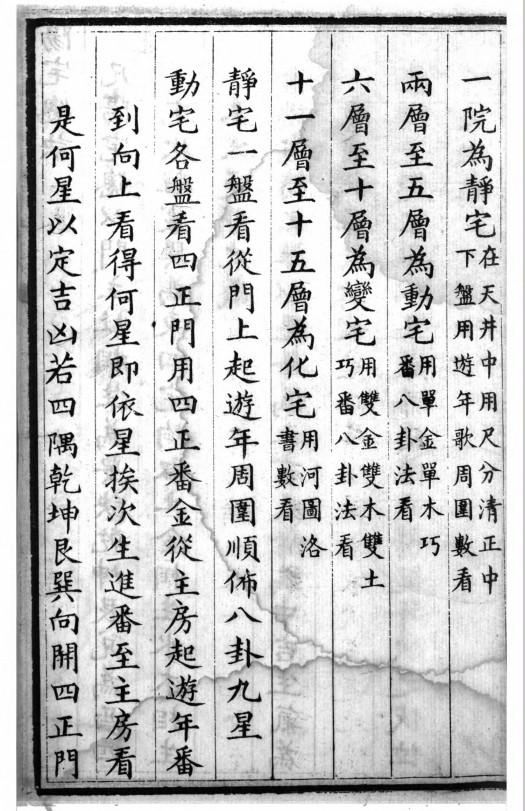 一院為靜宅在天井中用尺分清正中下盤用遊年歌周圍數看
兩層至五層為動宅用單金單木巧番八卦法看
六層至十層為變宅用雙金雙木雙土巧番八卦法看
十一層至十五層為化宅用河圖洛書數看
靜宅一盤看從門上起遊年周圍順佈八卦九星
動宅各盤看四正門用四正番金從主房起遊年番
到向上看得何星即依星挨次生進番至主房看
是何星以定吉凶若四隅乾坤艮巽向開四正門